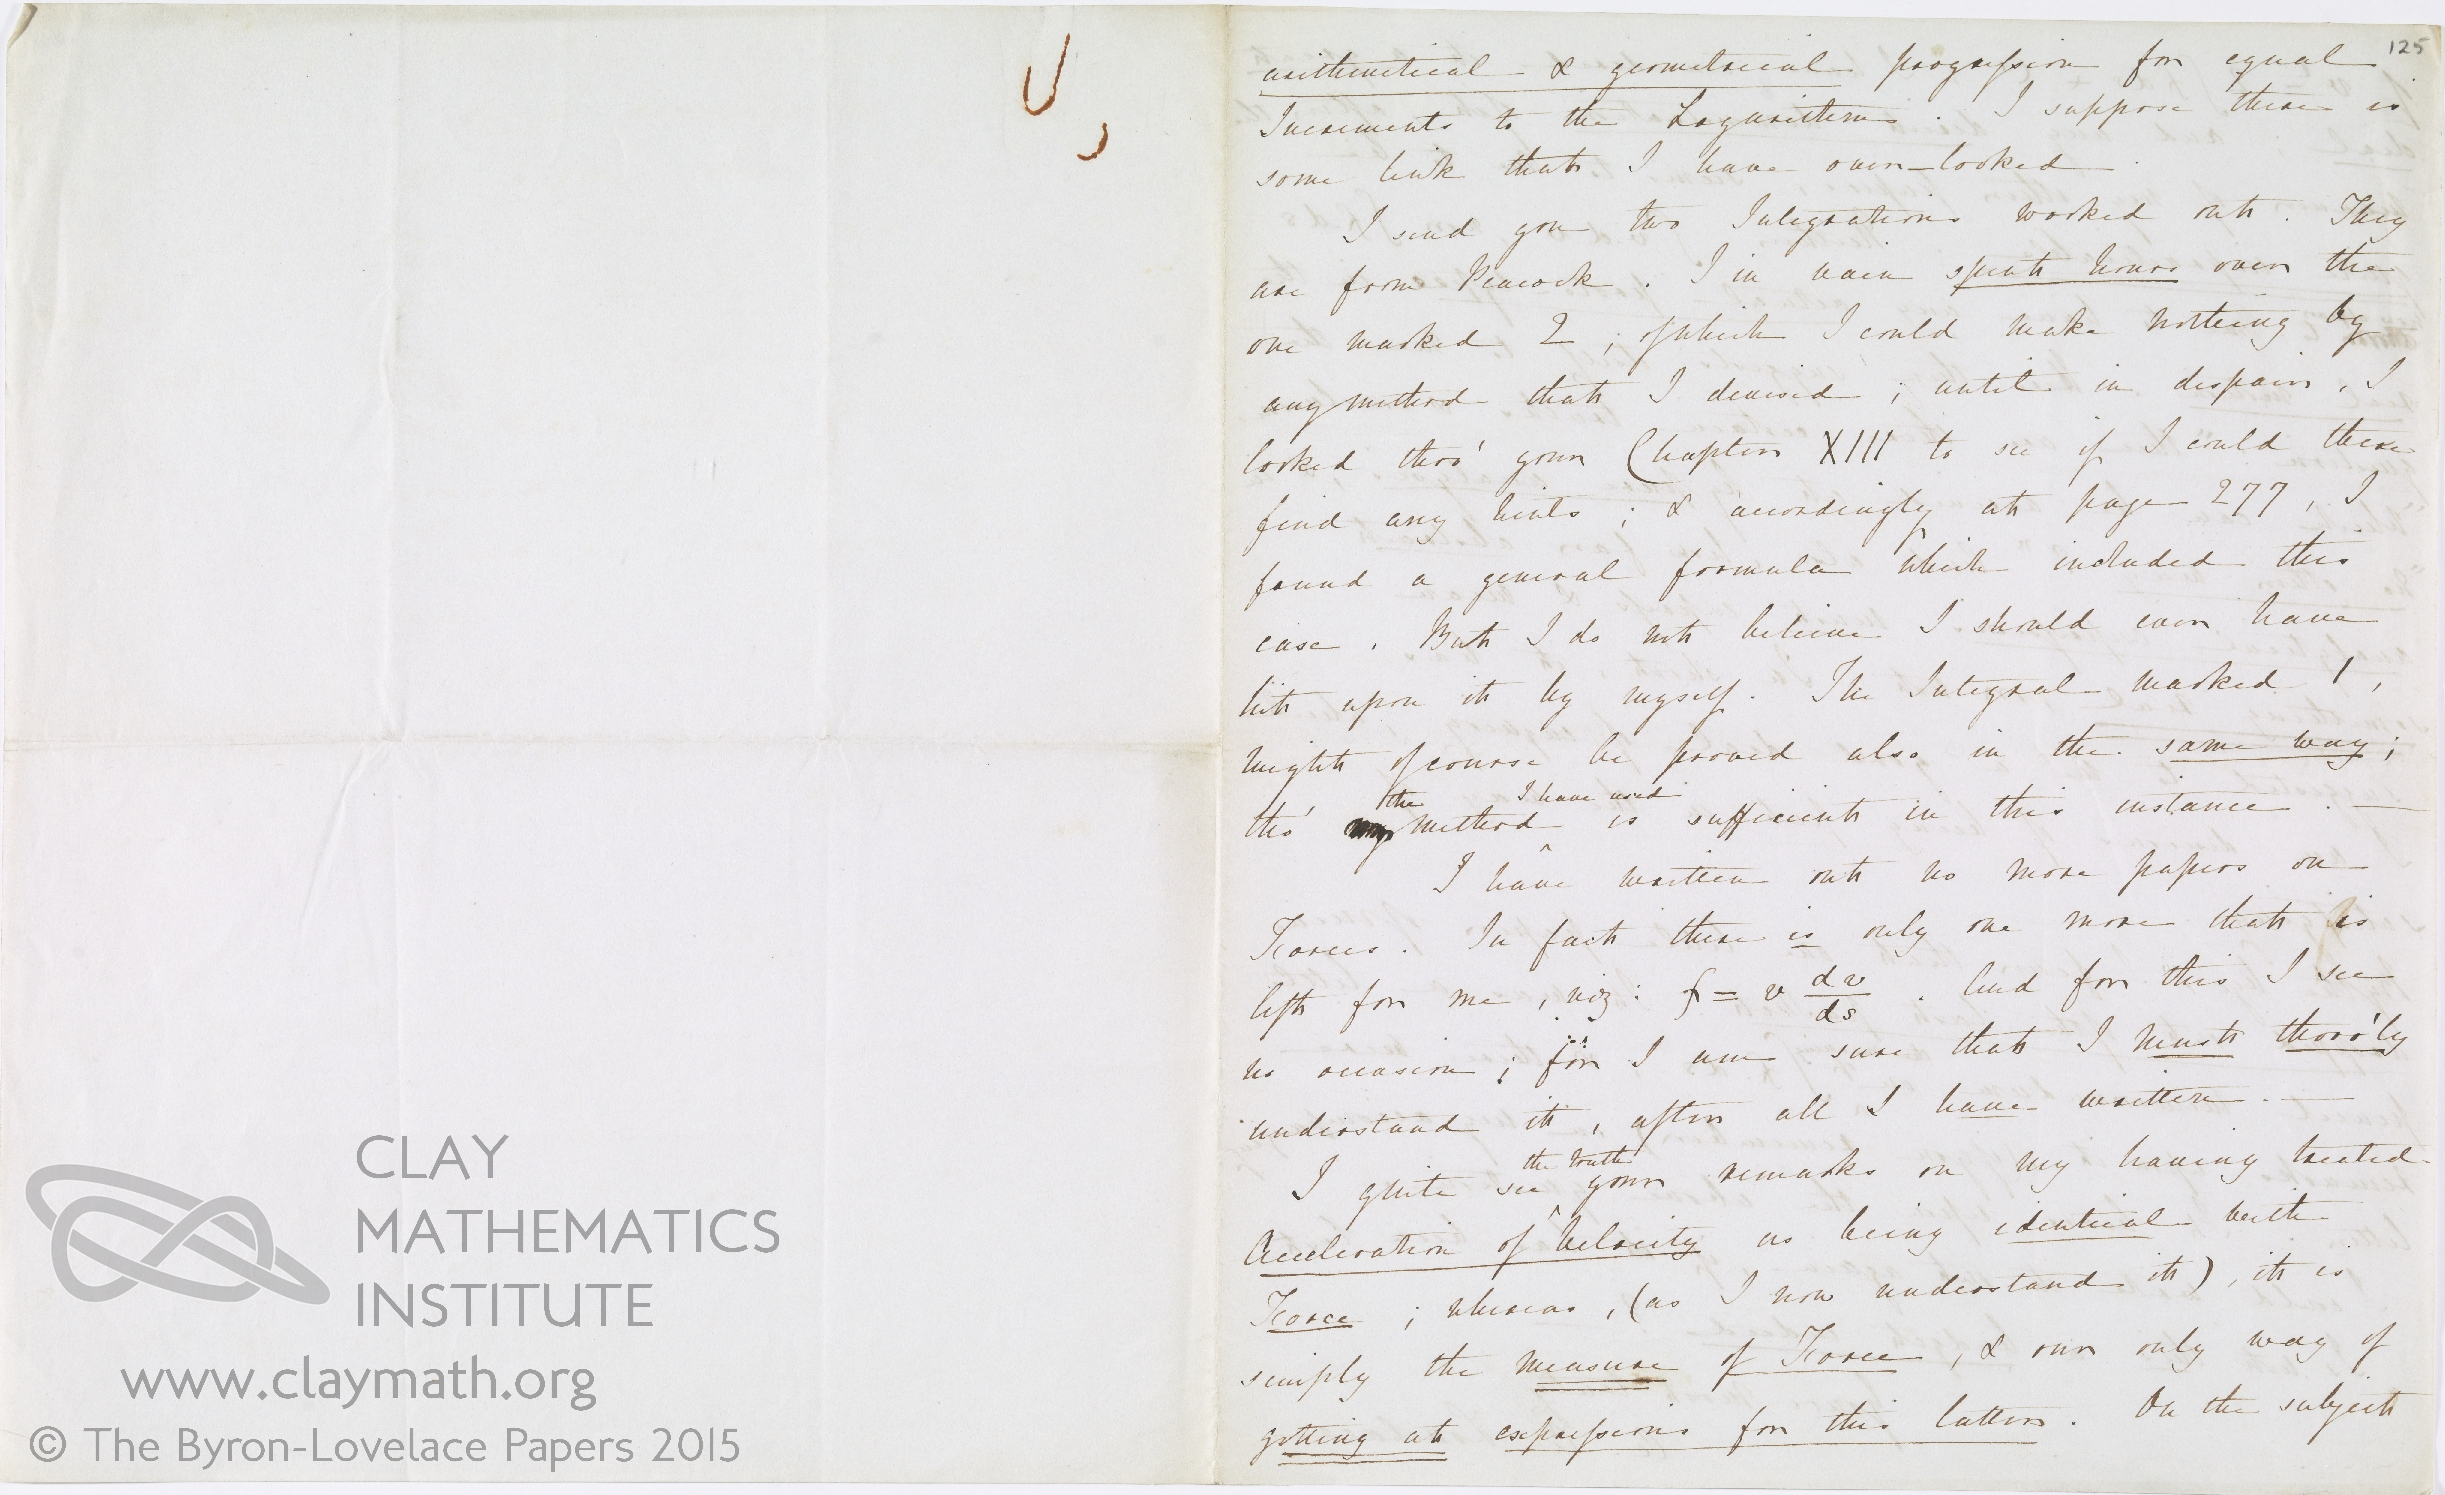 CLAY
MATHEMATICS
INSTITUTE
www.claymath.org
© The Byron-Lovelace Papers 2015
125
arithmetical & geometrical progression for equal
Increments to the Logarithms. I suppose there is
some link that I have over-looked.
I send you two Integrations worked out. They
are from Peacock. I in vain spent hours over the
one marked 2; of which I could make nothing by
any method that I devised; until in despair, I
looked thro' your Chapter XIII to see if I could there
find any hints; & accordingly at page 277, I
found a general formula which included this
case. But I do not believe I should ever have
hit upon it by myself. The Integral marked 1,
might of course be proved also in the same way;
tho' the method I have used is sufficient in this instance. —
I have written out no more papers on
Forces. In fact there is only one more that is
left for me, viz: f = v dv/ds. And for this I see
no occasion; for I am sure that I must thoro'ly
understand it, after all I have written. —
I quite see the truth your remarks on my having treated
Acceleration of Velocity as being identical with
Force; whereas, (as I now understand it), it is
simply the measure of Force, & our only way of
getting at expressions for this latter. On the subject